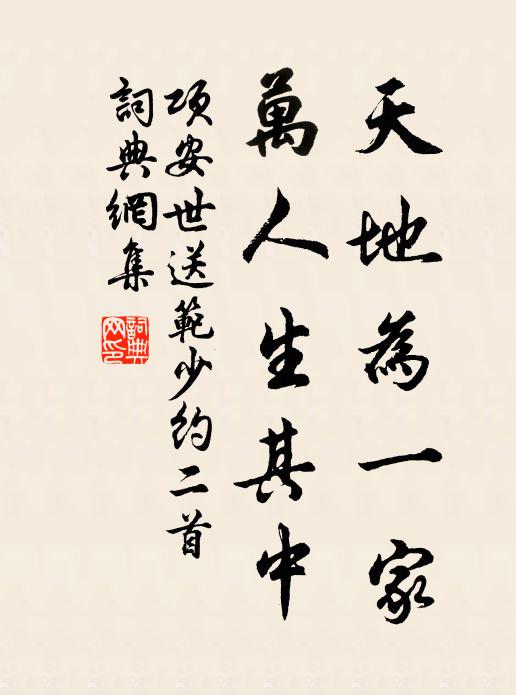 天地為一家
萬人生其中
項安世送範少約二首
詞典網集
詞典网印